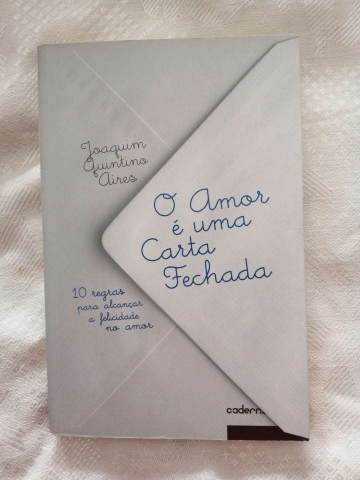 Joaquim
Quintino
Aires
O Amor
é uma
Carta
Fechada
10 regras
para alcançar
a felicidade
no amor